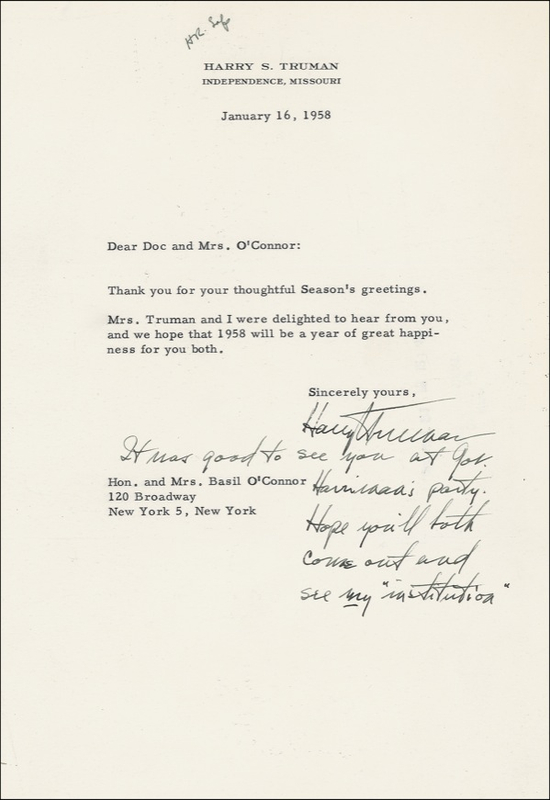 HARRY S. TRUMAN
INDEPENDENCE, MISSOURI
January 16, 1958
Dear Doc and Mrs. O'Connor:
Thank you for your thoughtful Season's greetings.
Mrs. Truman and I were delighted to hear from you,
and we hope that 1958 will be a year of great happi-
ness for you both.
Sincerely yours,
Harry Truman
It was good to see you at Gov.
Harriman's party.
Hope you'll both
come out and
see my "institution"
Hon. and Mrs. Basil O'Connor
120 Broadway
New York 5, New York